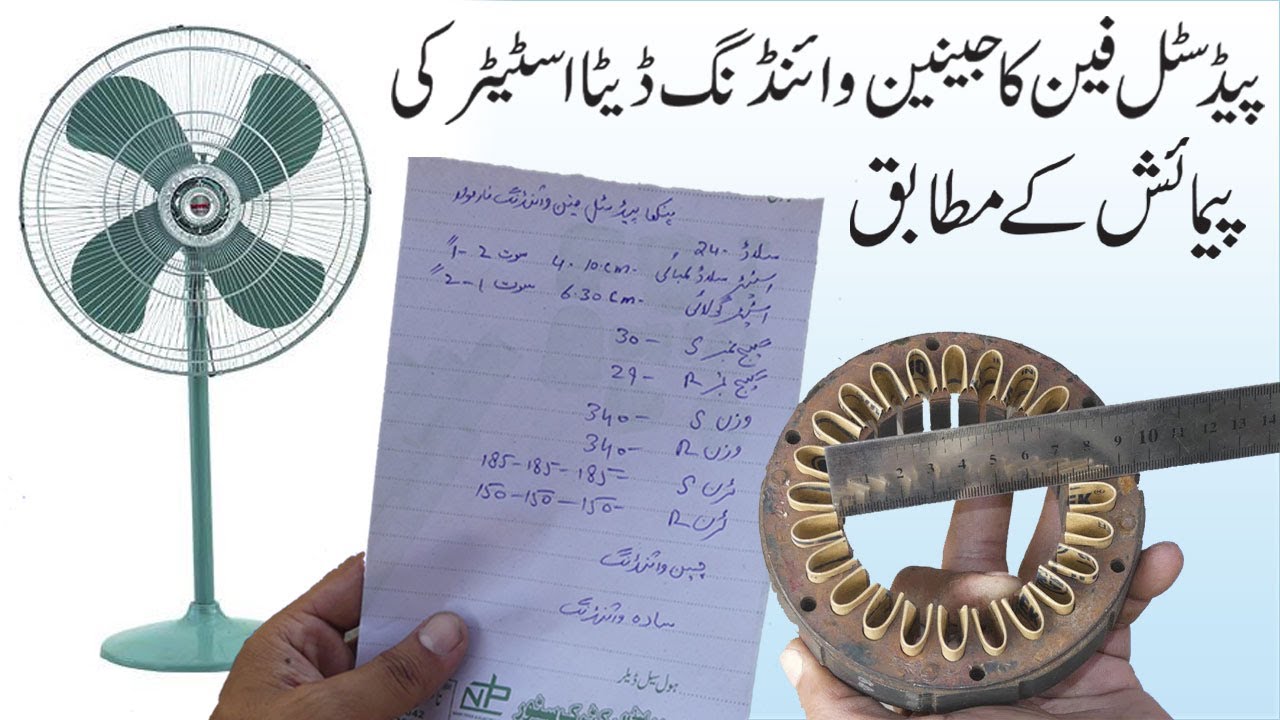 پیڈسٹل فین کا جینین وائنڈنگ ڈیٹا اسٹیٹر کی
پیمائش کے مطابق
پنکھا پیڈسٹل فین وائنڈنگ فارمولہ
سلاڈ 24۔
اسٹیٹر سلاڈ لمبائی 4.10.cm- سوت 2 -1"
اسٹیٹر گولائی 6.30cm- سوت 1 -2"
گیج نمبر S - 30
گیج نمبر R - 29
وزن S - 340
وزن R - 340
ٹرن S 185-185-185-
ٹرن R 150-150-150-
چین وائنڈنگ
سادہ وائنڈنگ
ہول سیل ڈیلر
1 2 3 4 5 6 7 8 9 10 11 12 13 14